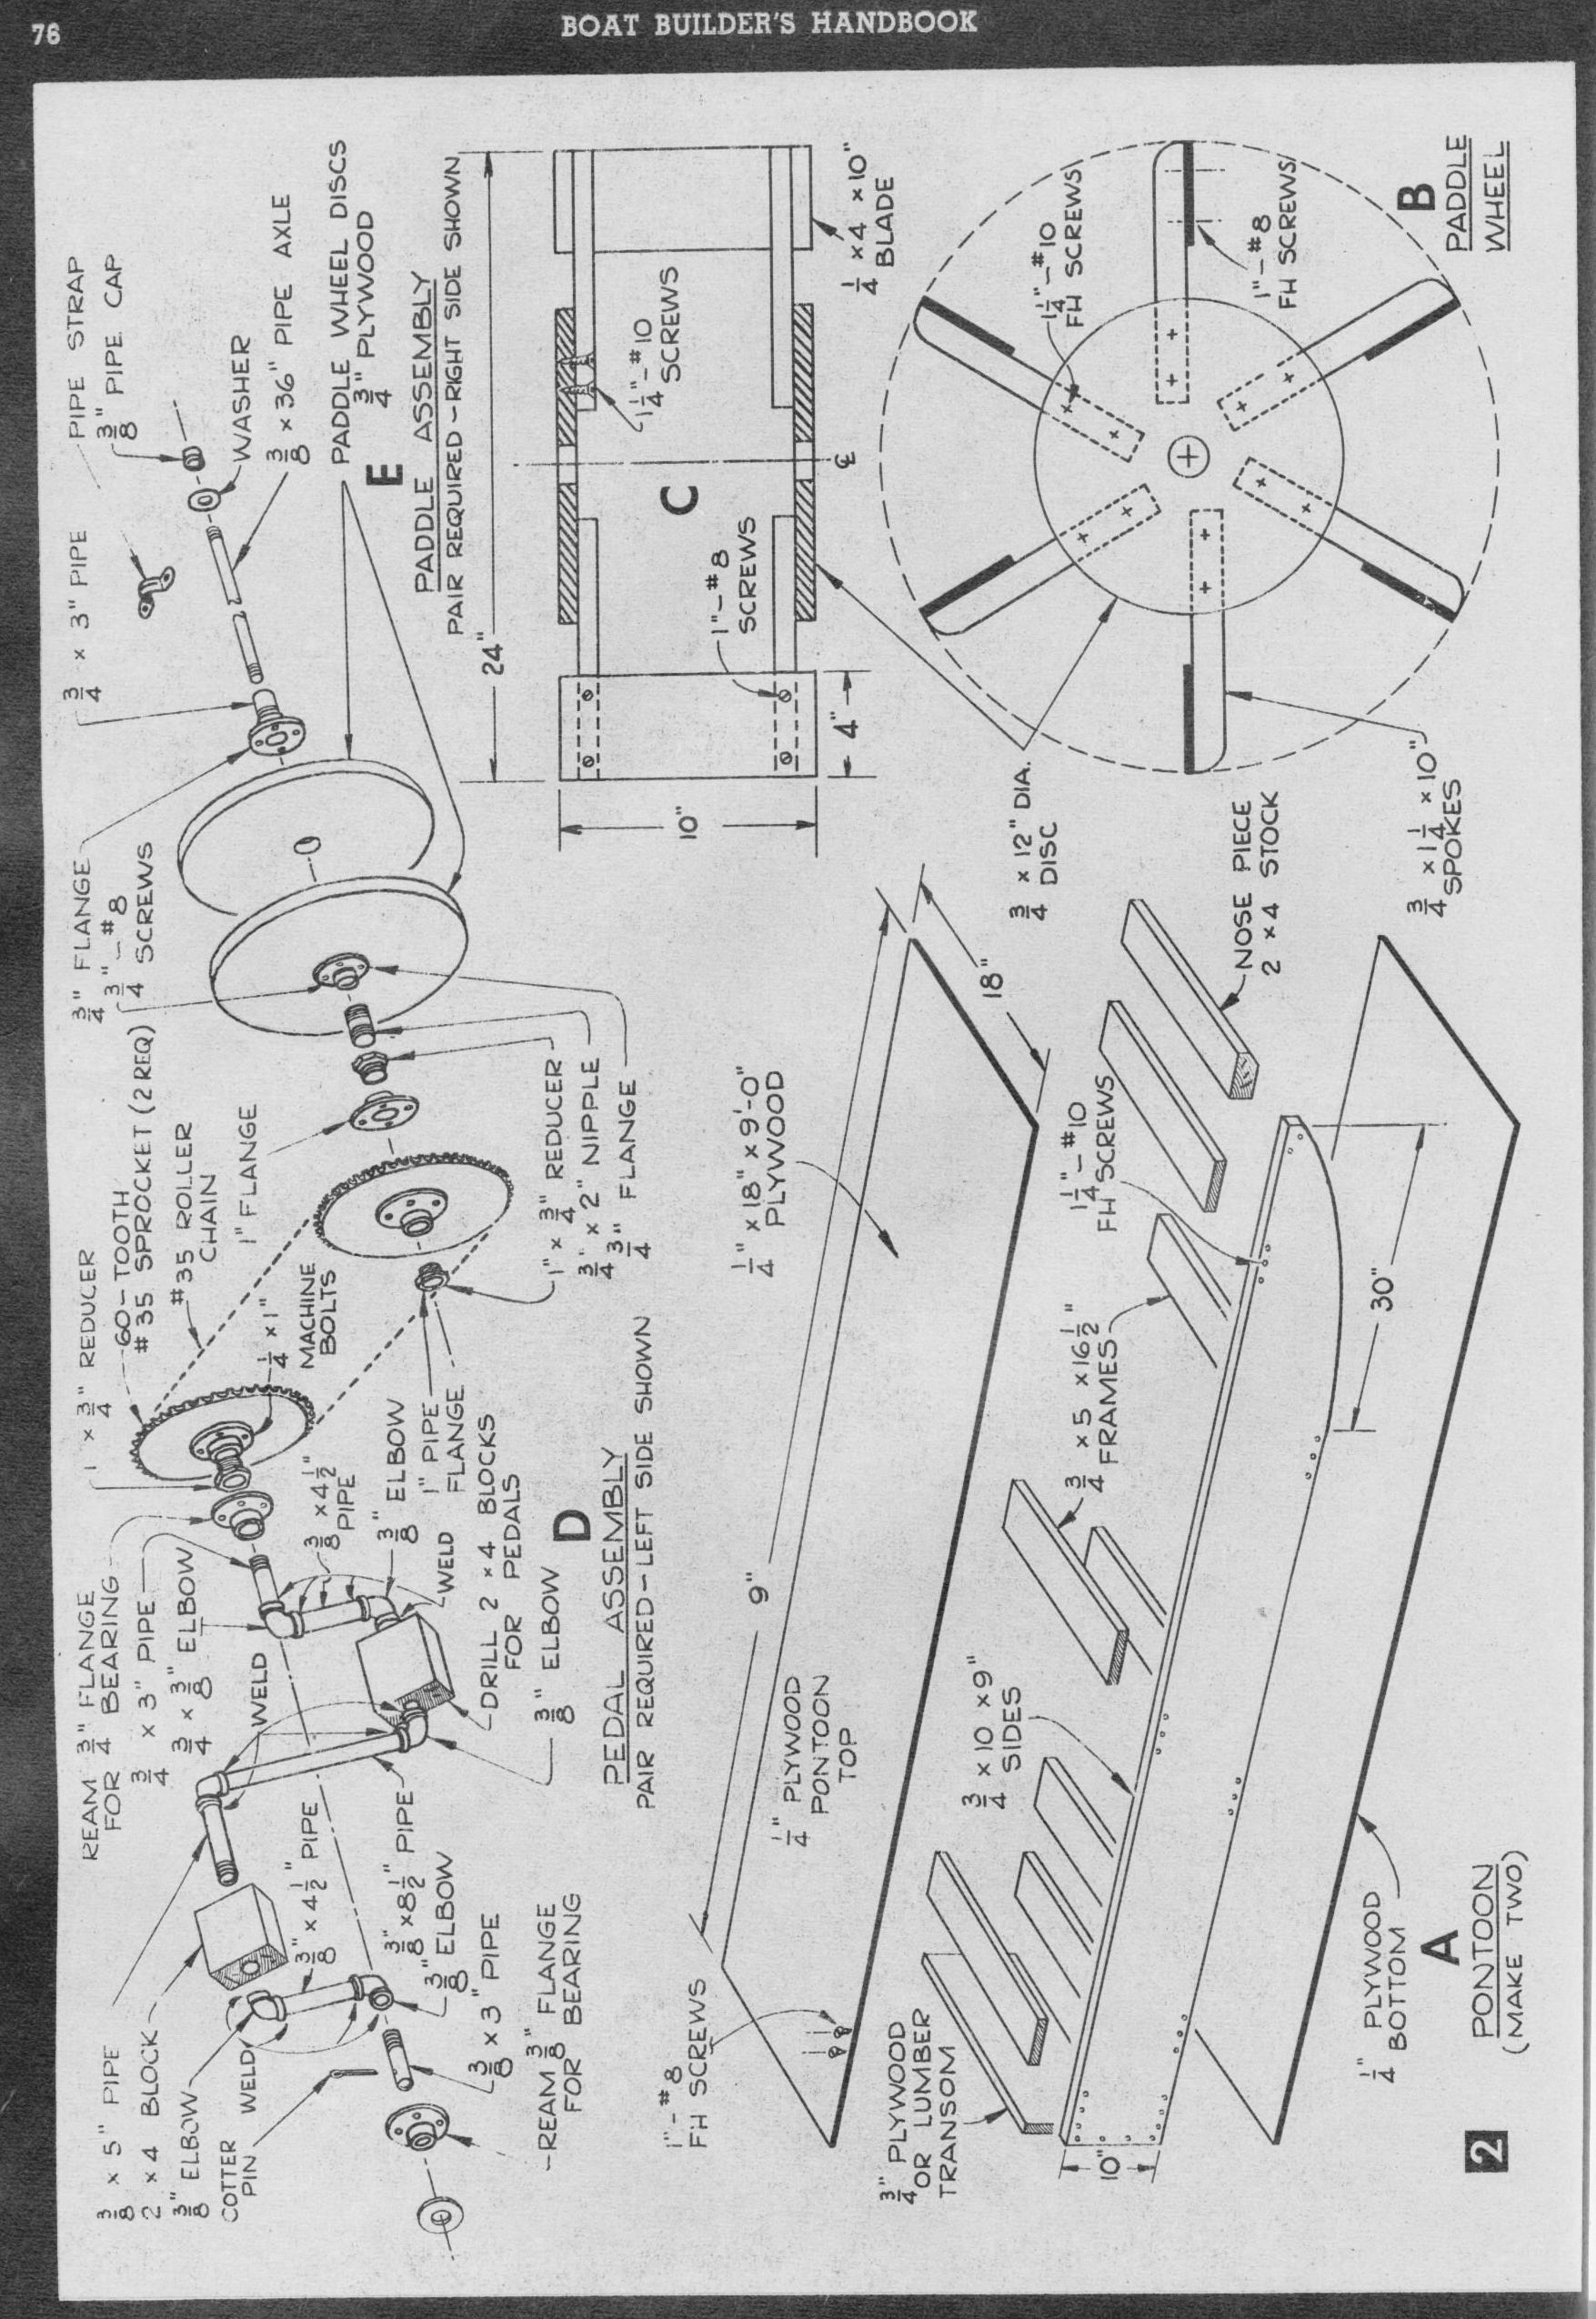 76
BOAT BUILDER'S HANDBOOK
3/8 x 5" PIPE
2 x 4 BLOCK
3/8" ELBOW
COTTER
PIN
WELD
REAM 3/4" FLANGE
FOR 3/4 BEARING
3/4 x 3" PIPE
3/4 x 3/8" ELBOW
WELD
1 x 3/4" REDUCER
60-TOOTH
#35 SPROCKET (2 REQ)
#35 ROLLER
CHAIN
1" FLANGE
1/4 x 1"
MACHINE
BOLTS
3/4" FLANGE
3/4"-#8
SCREWS
3/4 x 3" PIPE
PIPE STRAP
3/8" PIPE CAP
WASHER
3/8 x 36" PIPE AXLE
PADDLE WHEEL DISCS
3/4" PLYWOOD
E
PADDLE ASSEMBLY
PAIR REQUIRED-RIGHT SIDE SHOWN
3/8" x 4 1/2" PIPE
3/8" x 8 1/2" PIPE
3/8" ELBOW
3/8 x 3" PIPE
REAM 3/8" FLANGE
FOR BEARING
3/8 x 4 1/2"
PIPE
3/8" ELBOW
1" PIPE
FLANGE
WELD
DRILL 2 x 4 BLOCKS
FOR PEDALS
3/8" ELBOW
D
PEDAL ASSEMBLY
PAIR REQUIRED-LEFT SIDE SHOWN
1" x 3/4" REDUCER
3/4" x 2" NIPPLE
3/4" FLANGE
24"
1 1/4"-#10
SCREWS
C
1"-#8
SCREWS
10"
4"
℄
1/4 x 4 x 10"
BLADE
3/4 x 12" DIA.
DISC
1 1/4"-#10
FH SCREWS
1"-#8
FH SCREWS
3/4 x 1 1/4 x 10"
SPOKES
B
PADDLE
WHEEL
1"-#8
FH SCREWS
9"
1/4" PLYWOOD
PONTOON
TOP
1/4" x 18" x 9'-0"
PLYWOOD
18"
3/4" PLYWOOD
OR LUMBER
TRANSOM
10"
3/4 x 10 x 9"
SIDES
3/4 x 5 x 16 1/2"
FRAMES
1 1/4"-#10
FH SCREWS
NOSE PIECE
2 x 4 STOCK
30"
1/4" PLYWOOD
BOTTOM
A
PONTOON
(MAKE TWO)
2